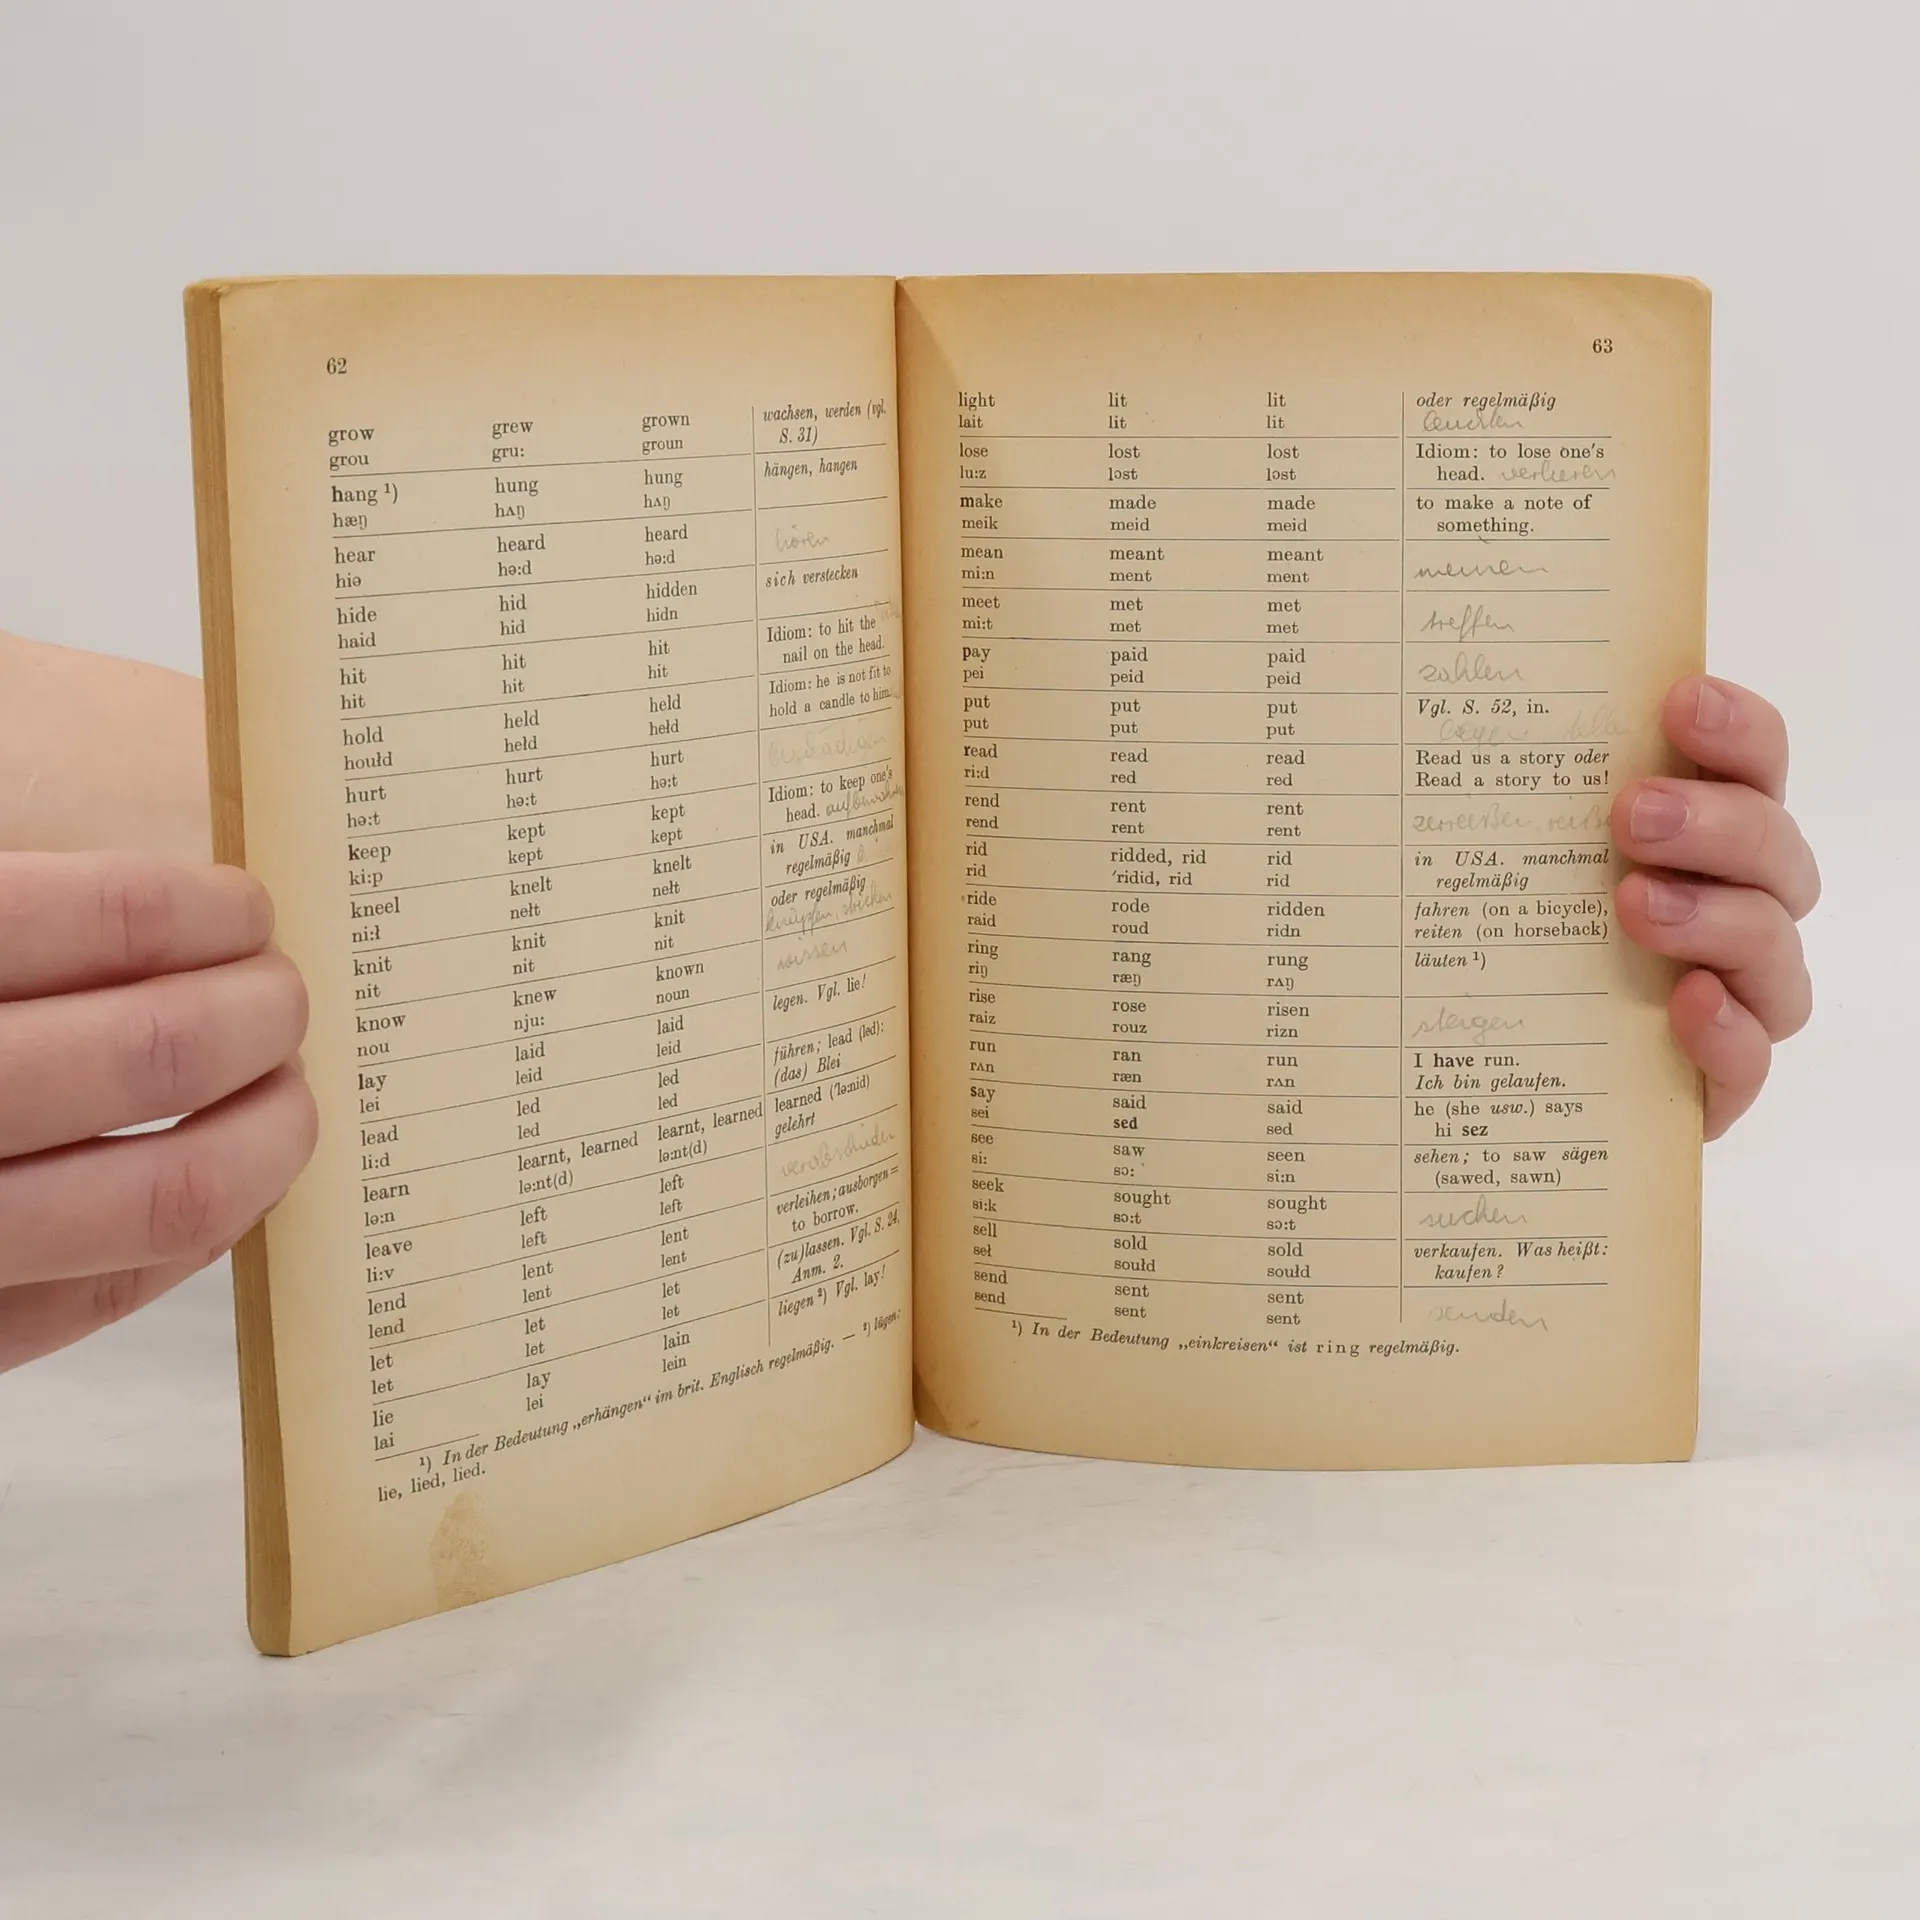 62
grow grew grown wachsen, werden (vgl.
grou gru: groun S. 31)
hang ¹) hung hung hängen, hangen
hæŋ hʌŋ hʌŋ
hear heard heard
hiə hə:d hə:d hören
hide hid hidden sich verstecken
haid hid hidn
hit hit hit Idiom: to hit the
hit hit hit nail on the head.
hold held held Idiom: he is not fit to
houłd hełd hełd hold a candle to him.
hurt hurt hurt
hə:t hə:t hə:t
keep kept kept Idiom: to keep one's
ki:p kept kept head. aufbewahren
kneel knelt knelt in USA. manchmal
ni:ł nełt nełt regelmäßig
knit knit knit oder regelmäßig
nit nit nit knüpfen, stricken
know knew known wissen
nou nju: noun
lay laid laid legen. Vgl. lie!
lei leid leid
lead led led führen; lead (led):
li:d led led (das) Blei
learn learnt, learned learnt, learned learned ('lə:nid)
lə:n lə:nt(d) lə:nt(d) gelehrt
leave left left verabschieden
li:v left left
lend lent lent verleihen; ausborgen =
lend lent lent to borrow.
let let let (zu)lassen. Vgl. S. 24,
let let let Anm. 2.
lie lay lain liegen ²) Vgl. lay!
lai lei lein
¹) In der Bedeutung „erhängen“ im brit. Englisch regelmäßig. — ²) lügen:
lie, lied, lied.
63
light lit lit oder regelmäßig
lait lit lit leuchten
lose lost lost Idiom: to lose one's
lu:z lɔst lɔst head. verlieren
make made made to make a note of
meik meid meid something.
mean meant meant
mi:n ment ment meinen
meet met met
mi:t met met treffen
pay paid paid
pei peid peid zahlen
put put put Vgl. S. 52, in.
put put put legen, stellen
read read read Read us a story oder
ri:d red red Read a story to us!
rend rent rent
rend rent rent zerreißen
rid ridded, rid rid in USA. manchmal
rid 'ridid, rid rid regelmäßig
ride rode ridden fahren (on a bicycle),
raid roud ridn reiten (on horseback)
ring rang rung läuten ¹)
riŋ ræŋ rʌŋ
rise rose risen
raiz rouz rizn steigen
run ran run I have run.
rʌn ræn rʌn Ich bin gelaufen.
say said said he (she usw.) says
sei sed sed hi sez
see saw seen sehen; to saw sägen
si: sɔ: si:n (sawed, sawn)
seek sought sought
si:k sɔ:t sɔ:t suchen
sell sold sold verkaufen. Was heißt:
seł soułd soułd kaufen?
send sent sent
send sent sent senden
¹) In der Bedeutung „einkreisen“ ist ring regelmäßig.